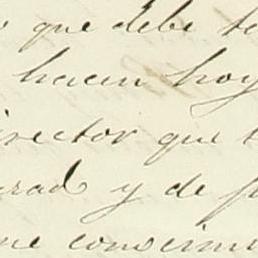 que debe
hacen hoy
irector que
rad y de
ne conocim